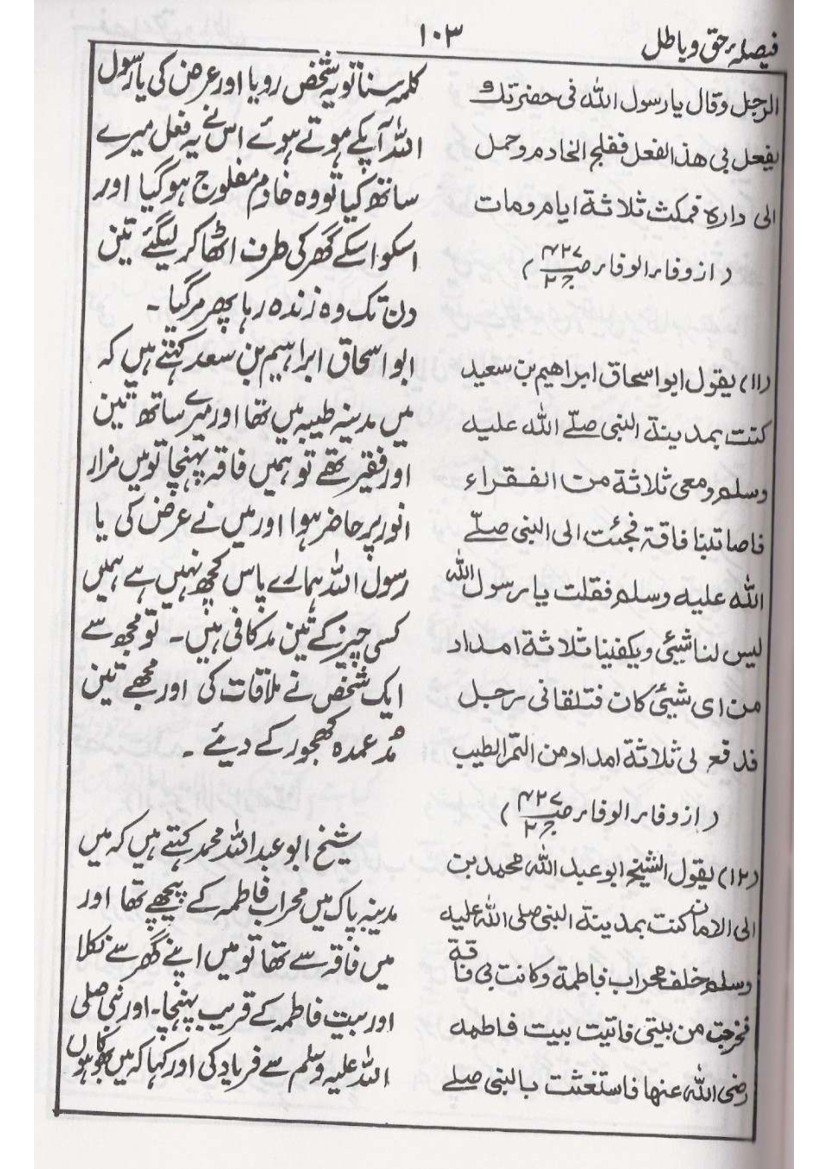 فیصلہ حق و باطل
۱۰۳
الرجل وقال یا رسول الله فی حضرتك
یفعل بی هذا الفعل ففلج الخادم وحمل
الی داره فمکث ثلاثة ایام ومات
( از وفاء الوفاء ص ۴۲۷ ج ۲ )
(۱۱) یقول ابو اسحاق ابراهیم بن سعید
کنت بمدینة النبی صلے الله علیه
وسلم ومعی ثلاثة من الفقراء
فاصابتنا فاقة فجئت الی النبی صلے
الله علیه وسلم فقلت یا رسول الله
لیس لنا شیئی ویکفینا ثلاثة امداد
من ای شیئی کان فتلقانی رجل
فدفع لی ثلاثة امداد من التمر الطیب
( از وفاء الوفاء ص ۴۲۷ ج ۲ )
(۱۲) یقول الشیخ ابو عبد الله محمد بن
الی الامان کنت بمدینة النبی صلی الله علیه
وسلم خلف محراب فاطمة وکانت بی فاقة
فخرجت من بیتی فاتیت بیت فاطمه
رضی الله عنها فاستغثت بالنبی صلے
کلمہ سنا تو یہ شخص رویا اور عرض کی یا رسول
اللہ آپکے ہوتے ہوئے اس نے یہ فعل میرے
ساتھ کیا تو وہ خادم مفلوج ہو گیا اور
اسکو اسکے گھر کی طرف اٹھا کر لیگئے تین
دن تک وہ زندہ رہا پھر مر گیا ۔
ابو اسحاق ابراہیم بن سعد کہتے ہیں کہ
میں مدینہ طیبہ میں تھا اور میرے ساتھ تین
اور فقیر تھے تو ہمیں فاقہ پہنچا تو میں مزار
انور پر حاضر ہوا اور میں نے عرض کی یا
رسول اللہ ہمارے پاس کچھ نہیں ہے ہمیں
کسی چیز کے تین مد کافی ہیں ۔ تو مجھ سے
ایک شخص نے ملاقات کی اور مجھے تین
مُد عمدہ کھجور کے دیئے ۔
شیخ ابو عبد اللہ محمد کہتے ہیں کہ میں
مدینہ پاک میں محراب فاطمہ کے پیچھے تھا اور
میں فاقہ سے تھا تو میں اپنے گھر سے نکلا
اور بیت فاطمہ کے قریب پہنچا ۔ اور نبی صلی
اللہ علیہ وسلم سے فریاد کی اور کہا کہ میں بھوکا ہوں